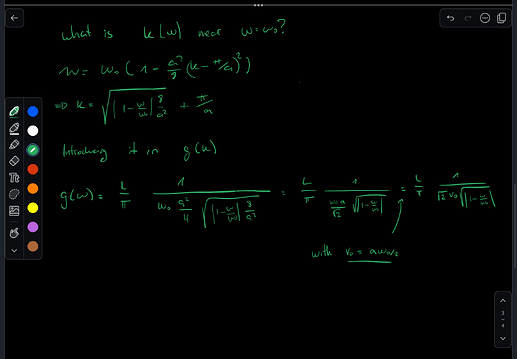 what is k(w) near w=w₀?
w = w₀ (1 - a²/8 (k - π/a)²)
⇒ k = √(|1 - w/w₀| 8/a²) + π/a
Introducing it in g(w)
g(w) = L/π 1/(w₀ a²/4 √(|1 - w/w₀| 8/a²)) = L/π 1/(w₀a/√2 √|1 - w/w₀|) = L/π 1/(√2 v₀ √|1 - w/w₀|)
with v₀ = aw₀/2
3
4